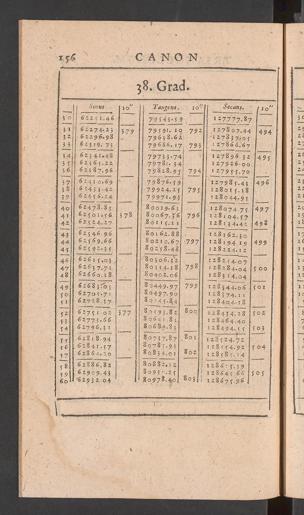 156 CANON
38. Grad.
Sinus 10" Tangens. 10" Secans. 10"
30 62251.46 79543.59 127777.87
31 62274.23 379 79591.10 792 127807.44 494
32 62296.98 79638.62 127837.05
33 62319.75 79686.17 793 127866.67
34 62342.48 79733.74 127896.32 495
35 62365.22 79781.34 127926.00
36 62387.96 79828.95 794 127955.70
37 62410.69 79876.59 127985.43 496
38 62433.42 79924.25 795 128015.18
39 62456.14 79971.93 128044.95
40 62478.85 80019.63 128074.75 497
41 62501.56 378 80067.36 796 128104.57
42 62524.27 80115.11 128134.42 498
43 62546.96 80162.88 128164.30
44 62569.66 80210.67 797 128194.19 499
45 62592.35 80258.48 128224.12
46 62615.03 80306.32 128254.07
47 62637.71 80354.18 798 128284.04 500
48 62660.38 80402.06 128314.04
49 62683.05 80449.97 799 128344.06 501
50 62705.71 80497.90 128374.11
51 62728.37 80545.84 128404.18
52 62751.02 377 80593.82 800 128434.28 502
53 62773.66 80641.81 128464.40
54 62796.31 80689.83 128494.55 503
55 62818.94 80737.87 801 128524.72
56 62841.57 80785.93 128554.92 504
57 62864.20 80834.01 802 128585.14
58 62886.82 128615.39
59 62909.43 80930.25 128645.66 505
60 62932.04 80978.40 803 128675.96